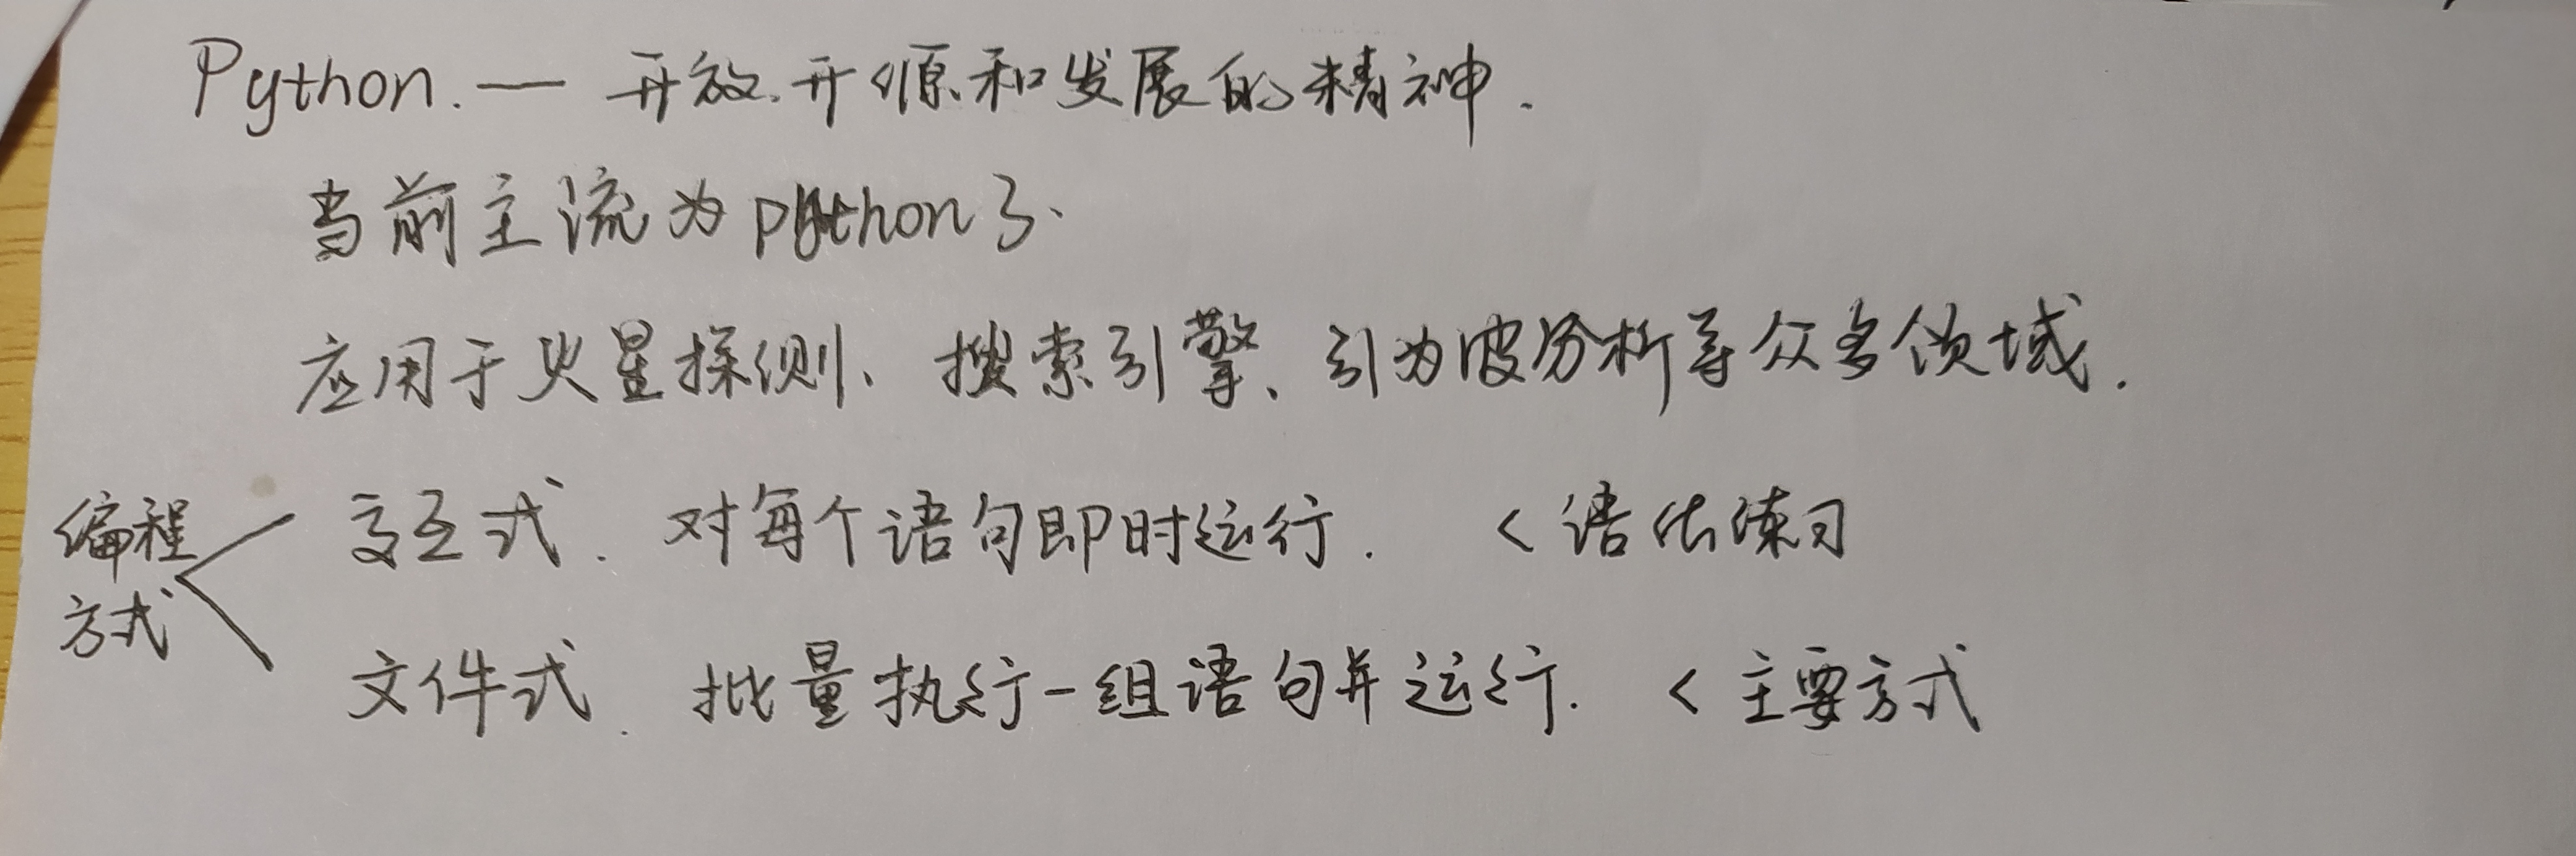 Python. — 开放、开源和发展的精神.
当前主流为python3.
应用于火星探测、搜索引擎、引力波分析等众多领域.
编程方式
交互式. 对每个语句即时运行. < 语法练习
文件式. 批量执行一组语句并运行. < 主要方式